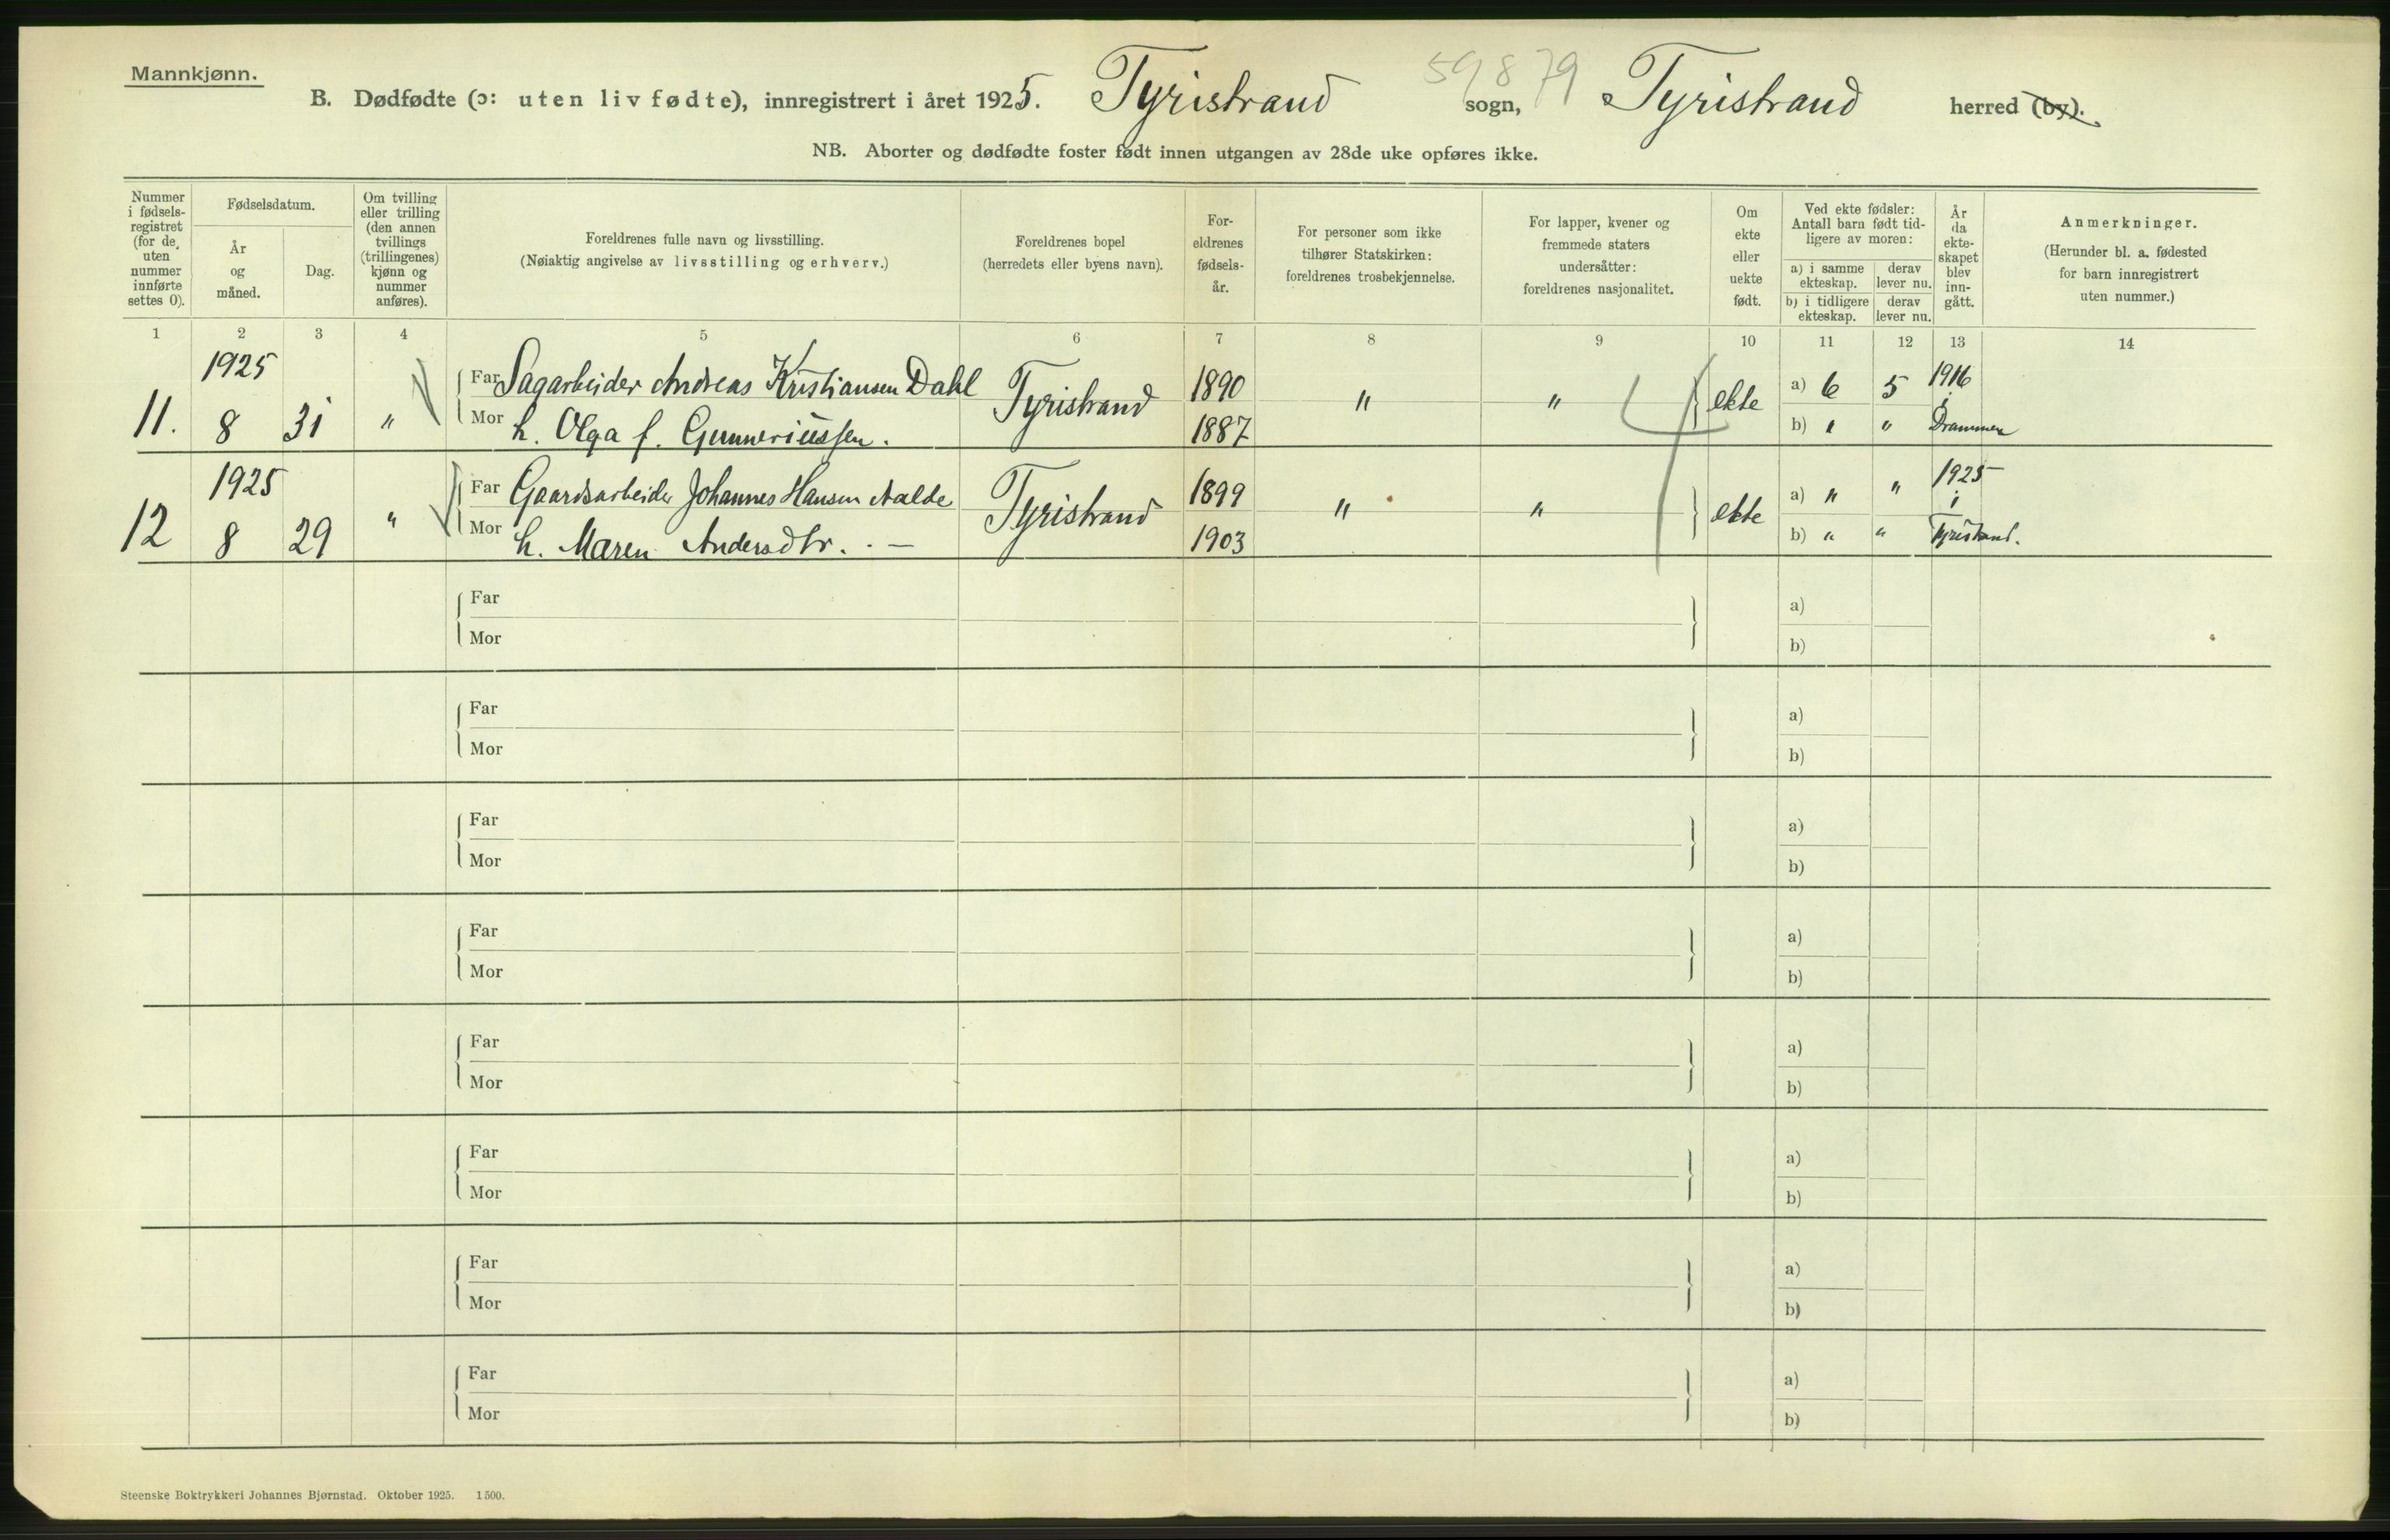 Mannkjønn.
59879
B. Dødfødte (ɔ: uten liv fødte), innregistrert i året 1925. Tyristrand sogn, Tyristrand herred (by).
NB. Aborter og dødfødte foster født innen utgangen av 28de uke opføres ikke.
Nummer i fødsels-registret (for de uten nummer innførte settes 0).
Fødselsdatum.
År og måned.
Dag.
Om tvilling eller trilling (den annen tvillings (trillingenes) kjønn og nummer anføres).
Foreldrenes fulle navn og livsstilling.
(Nøiaktig angivelse av livsstilling og erhverv.)
Foreldrenes bopel
(herredets eller byens navn).
For-eldrenes fødsels-år.
For personer som ikke tilhører Statskirken: foreldrenes trosbekjennelse.
For lapper, kvener og fremmede staters undersåtter: foreldrenes nasjonalitet.
Om ekte eller uekte født.
Ved ekte fødsler: Antall barn født tid-ligere av moren:
a) i samme ekteskap.
derav lever nu.
b) i tidligere ekteskap.
derav lever nu.
År da ekte-skapet blev inn-gått.
Anmerkninger.
(Herunder bl. a. fødested for barn innregistrert uten nummer.)
1 2 3 4 5 6 7 8 9 10 11 12 13 14
1925 Far Sagarbeider Andreas Kristiansen Dahl 1890 a) 6 5 1916 i
11. 8 31 " Mor h. Olga f. Gunneriussen. Tyristrand 1887 " " ekte b) " " Drammen
1925 Far Gaardsarbeider Johannes Hansen Aalde 1899 a) " " 1925 i
12 8 29 " Mor h. Maren Andersdtr. - — Tyristrand 1903 " " ekte b) " " Tyristrand.
Far a)
Mor b)
Far a)
Mor b)
Far a)
Mor b)
Far a)
Mor b)
Far a)
Mor b)
Far a)
Mor b)
Far a)
Mor b)
Far a)
Mor b)
Steenske Boktrykkeri Johannes Bjørnstad. Oktober 1925. 1500.